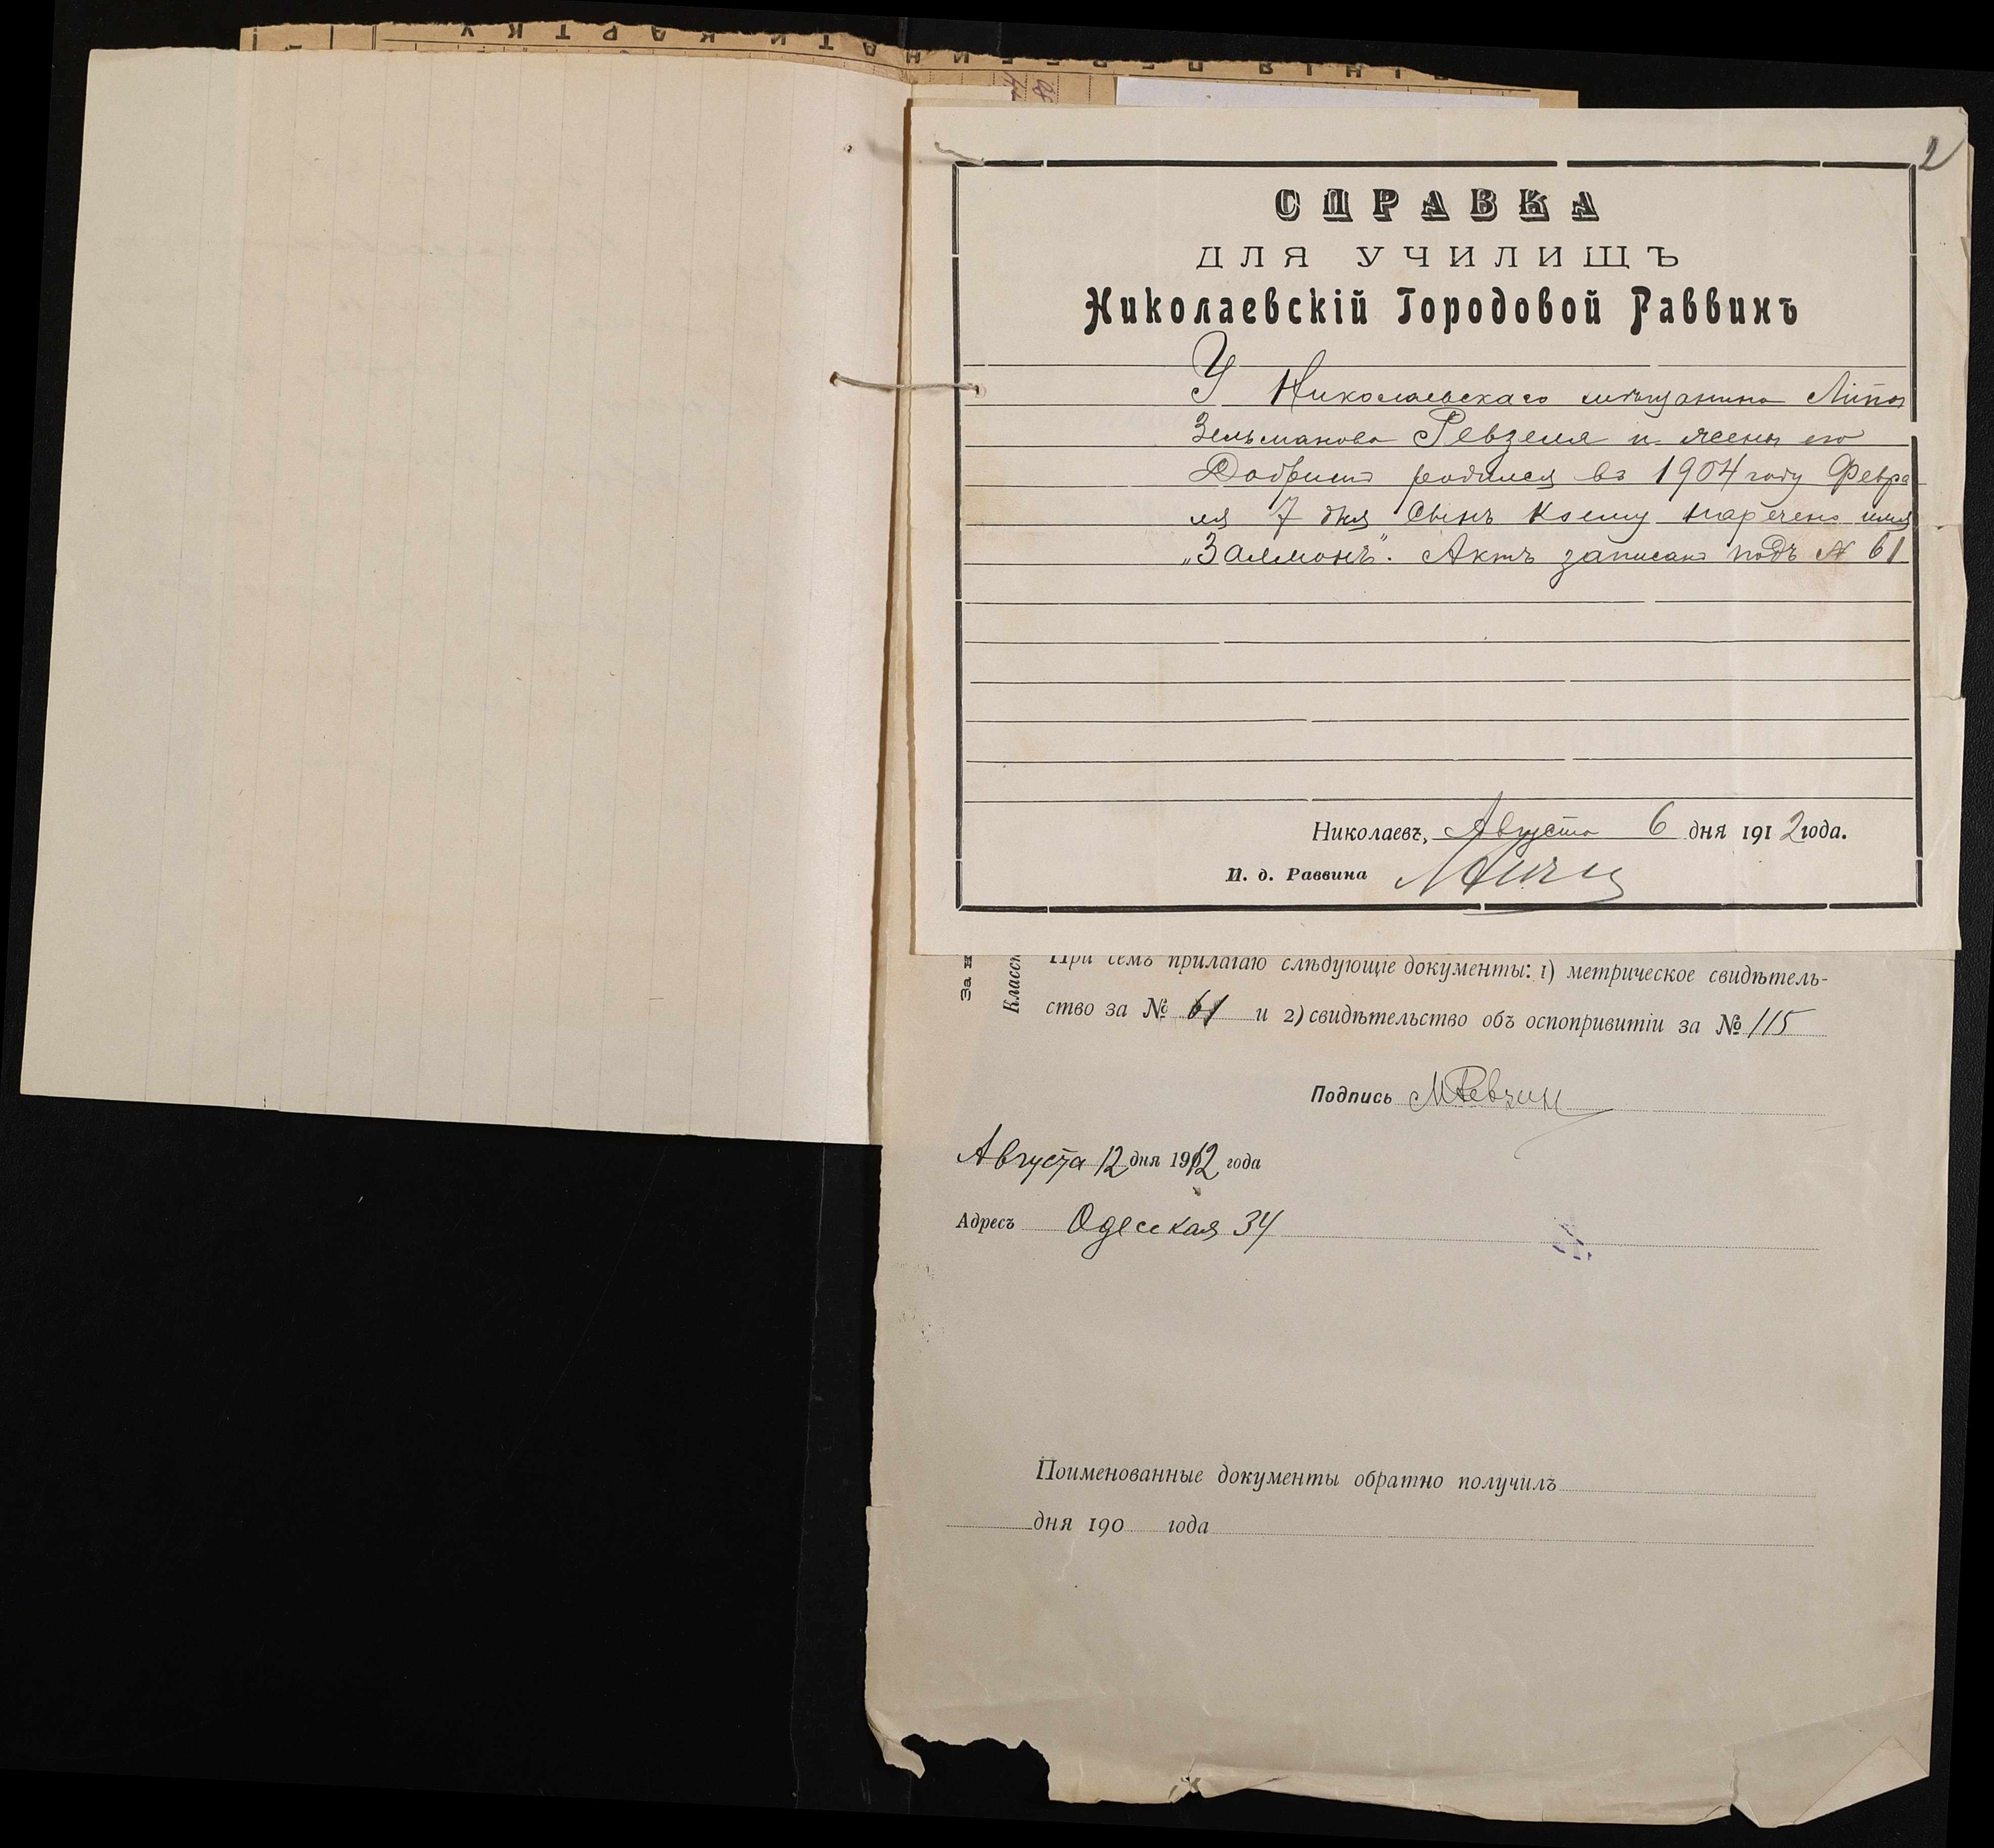 2
СПРАВКА
ДЛЯ УЧИЛИЩЪ
Николаевскій Городовой Раввинъ
У Николаевскаго мѣщанина Липы
Зельманова Ревзеля и жены его
родился въ 1904 году Февра
ля 7 дня сынъ коему наречено имя
„Залмонъ“. Актъ записанъ подъ № 61
Николаевъ, Августа 6 дня 1912 года.
И. д. Раввина
За н
Класс
При семъ прилагаю слѣдующіе документы: 1) метрическое свидѣтель-
ство за № 61 и 2) свидѣтельство объ оспопривитіи за № 115
Подпись МРевзин
Августа 12 дня 1912 года
Адресъ Одесская 34
Поименованные документы обратно получилъ
дня 190 года